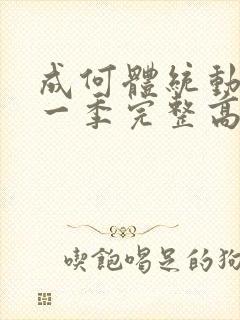 成何體統動
一季完整高
喫飽喝足的狗